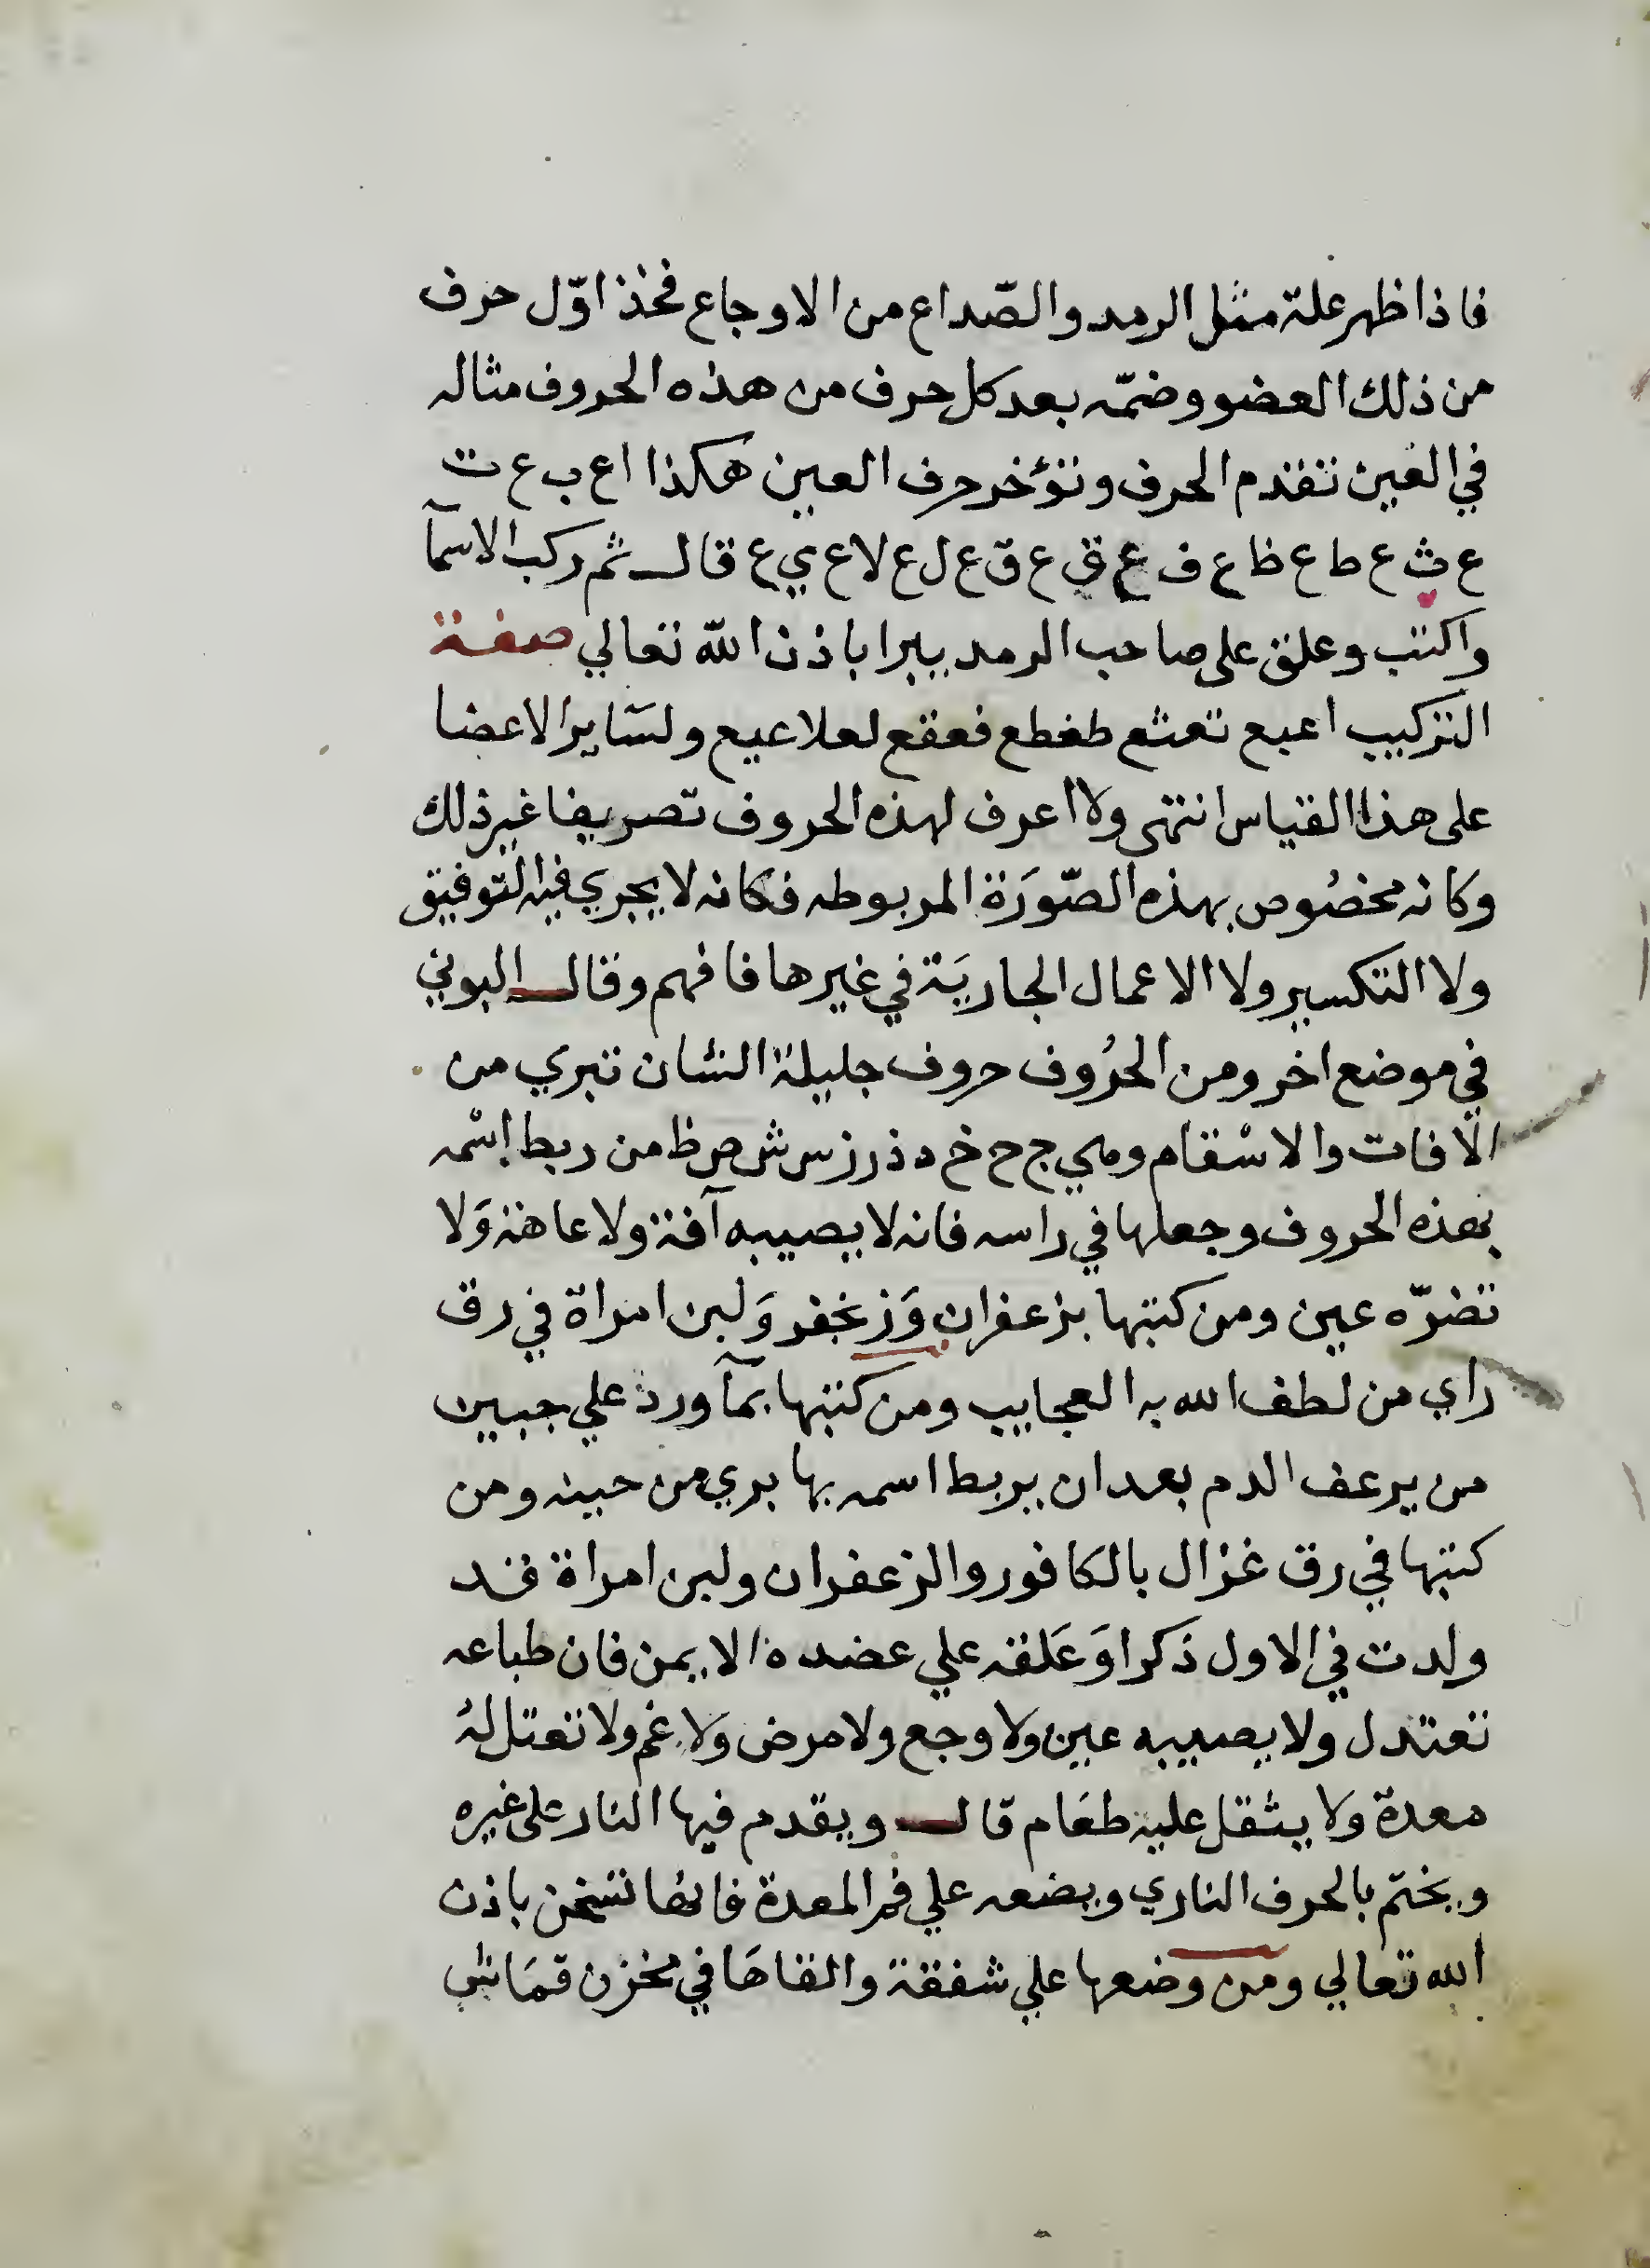 فاذا ظهر علة مثل الرمد والصّداع من الاوجاع فخذ اوّل حرف
من ذلك العضو وضمّه بعد كل حرف من هذه الحروف مثاله
في العين تقدم الحرف وتؤخر حرف العين هكذا ا ع ب ع ت
ع ث ع ط ع ظ ع ف ع ق ع ل ع لا ع ي ع قال ثم ركب الاسمآ
واكتب وعلق على صاحب الرمد يبرا باذن الله تعالي صفة
التركيب اعبع تعثع طعظع فعقع لعلاعيع ولسَاير الاعضا
على هذا القياس انتهى ولا اعرف لهذه الحروف تصريفا غير ذلك
وكانه مخصُوص بهذه الصّورَة المربوطه فكانه لا يجري فيه التوفيق
ولا التكسير ولا الاعمال الجاريَة في غيرها فافهم وقال البوني
في موضع اخر ومن الحرُوف حروف جليلة الشان تبري من
الافات والاسْقام وهي ج ح خ د ذ ر ز س ش ص ظ من ربط إسْمه
بهذه الحروف وجعلها في راسه فانه لا يصيبه آفة ولا عاهة وَلا
تضرّه عين ومن كتبها بزعفران وَزنجفر وَلبن امراة في رق
راي من لطف الله به العجايب ومن كتبها بمآ ورد علي جبين
من يرعف الدم بعد ان يربط اسمه بها بري من حينه ومن
كتبها في رق غزال بالكافور والزعفران ولبن امراة قد
ولدت في الاول ذكرا وَعَلقه علي عضده الايمن فان طباعه
تعتدل ولا يصيبه عين ولا وجع ولا مرض وَلا غم ولا تعتل لهُ
معدة وَلا يثقل عليه طعَام قال ويقدم فيها النار على غيره
ويختم بالحرف الناري ويضعه علي فم المعدة فانها تسخن باذن
الله تعالي ومن وضعها علي شقفة والقاهَا في مخزن قمَاش